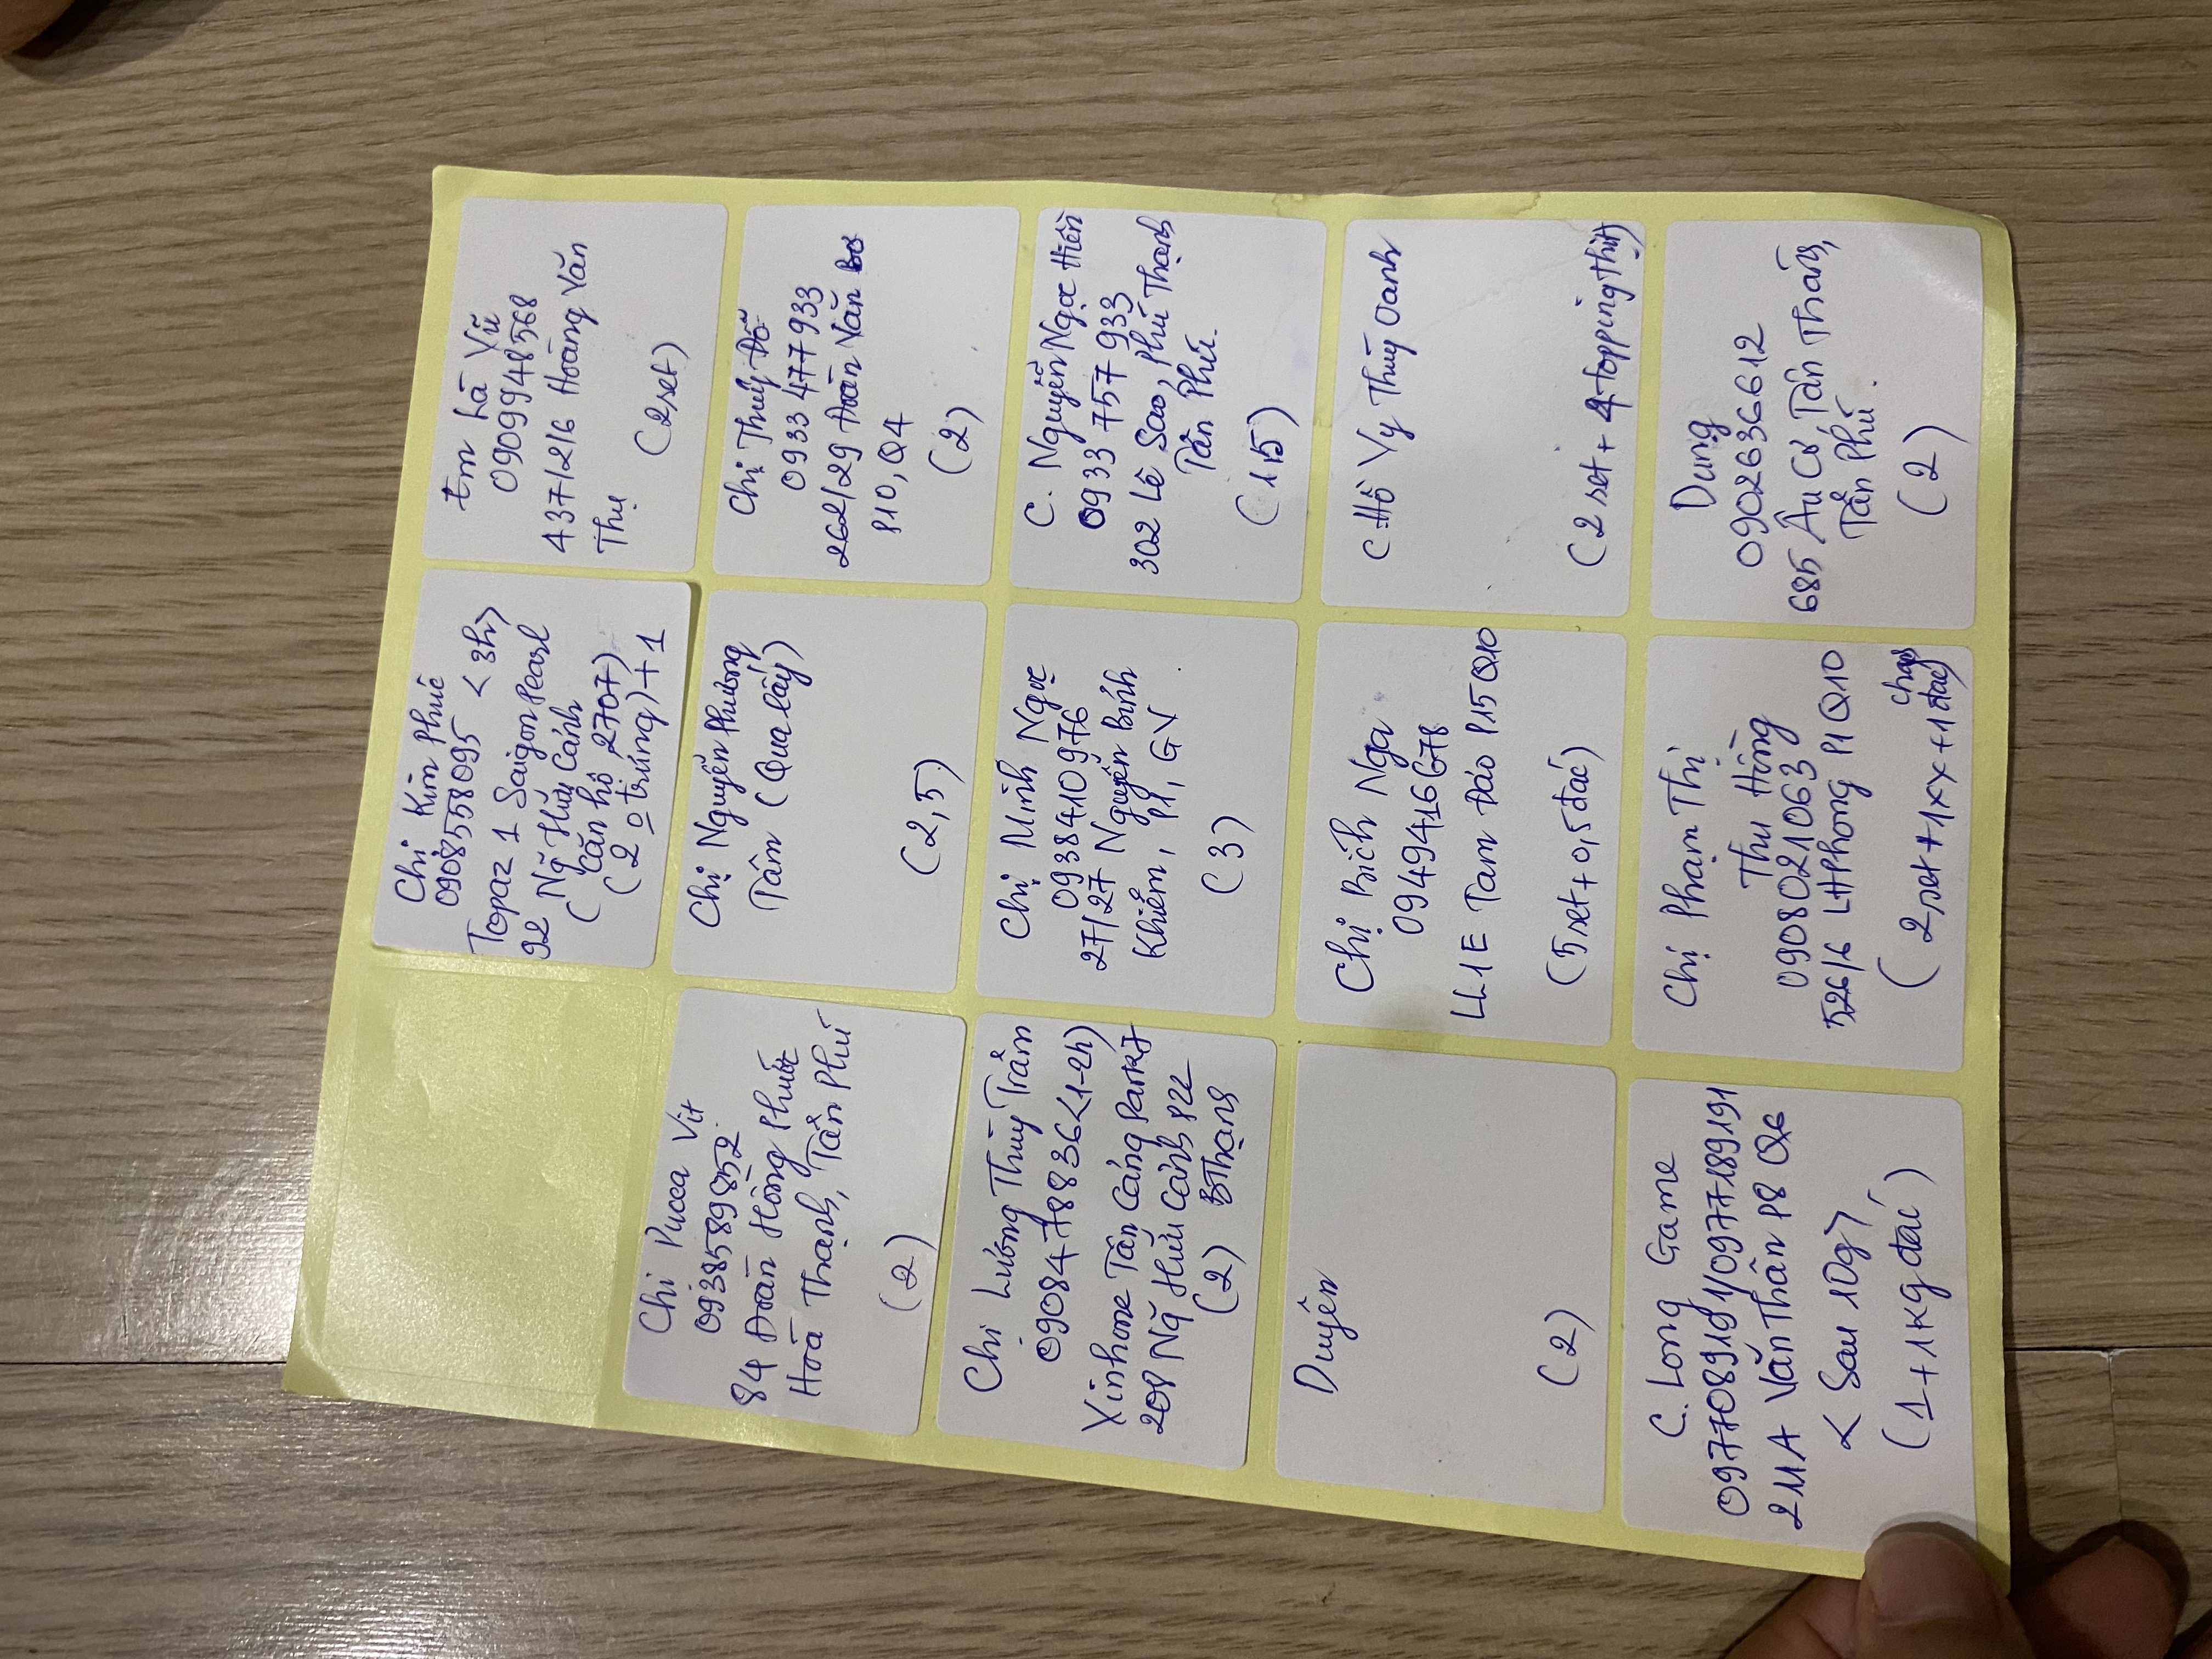 Chị Kim Phúc
0908558095 < 3h>
Topaz 1 Saigon Pearl
92 Ng~ Hữu Cảnh
( Căn hộ 2707)
(2 o trứng) + 1
Em Hà Vũ
0909948568
437/2/6 Hoàng Văn
Thụ
(2 set)
Chị Pucca Vit
0938589852
84 Đoàn Hồng Phước
Hoà Thạnh, Tân Phú
(2)
Chị Nguyễn Phương
Tâm (Qua lấy)
(2,5)
Chị Thuý Đỗ
0933 477 933
262/29 Đoàn Văn Bơ
P10, Q4
(2)
Chị Lương Thùy Trâm
0908478836 <1-2h)
Vinhome Tân Cảng Park7
208 Ng~ Hữu Cảnh P22
(2) BThạnh
Chị Minh Ngọc
0938410976
27/27 Nguyễn Bỉnh
Khiêm, P1, GV
(3)
C. Nguyễn Ngọc Hiền
0933 757 933
302 Lê Sao, Phú Thạnh
Tân Phú.
(1 15)
Duyên
(2)
Chị Bích Nga
0949416678
LL1E Tam Đảo P15 Q10
(5 set + 0,5 đác)
C Hồ Vy Thuỳ Oanh
(2 set + 4 topping thịt)
C. Long Game
0977089191/0977189191
211A Văn Thân P8 Q6
< Sau 10g>
(1 + 1kg đác)
Chị Phạm Thị
Thu Hồng
0908021063
526/6 LHPhong P1 Q10
(2 set + 1xx + 1 đác)
Dung
0902636612
685 Âu Cơ Tân Thành,
Tân Phú.
(2)